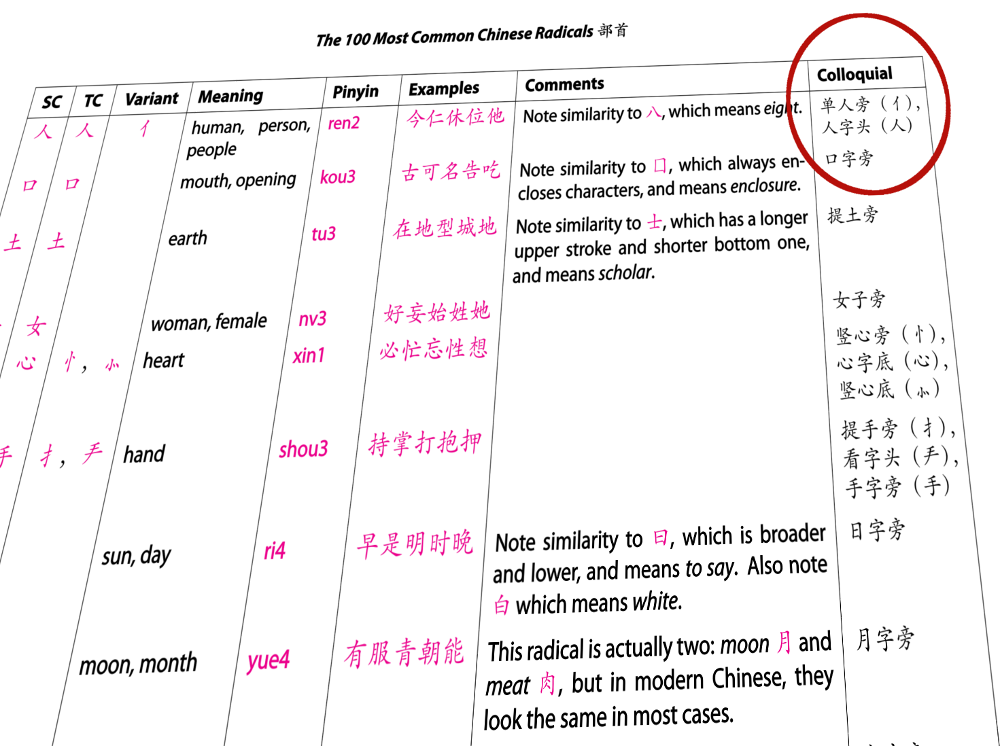 The 100 Most Common Chinese Radicals 部首
SC TC Variant Meaning Pinyin Examples Comments Colloquial
人 人 亻 human, person, people ren2 今仁休位他 Note similarity to 八, which means eight. 单人旁（亻）, 人字头（人）
口 口 mouth, opening kou3 古可名告吃 Note similarity to 囗, which always encloses characters, and means enclosure. 口字旁
土 土 earth tu3 在地型城地 Note similarity to 士, which has a longer upper stroke and shorter bottom one, and means scholar. 提土旁
女 woman, female nv3 好妄始姓她 女子旁
心 忄, ⺗ heart xin1 必忙忘性想 竖心旁（忄）, 心字底（心）, 竖心底（⺗）
手 扌, 龵 hand shou3 持掌打抱押 提手旁（扌）, 看字头（龵）, 手字旁（手）
sun, day ri4 早是明时晚 Note similarity to 曰, which is broader and lower, and means to say. Also note 白 which means white. 日字旁
moon, month yue4 有服青朝能 This radical is actually two: moon 月 and meat 肉, but in modern Chinese, they look the same in most cases. 月字旁